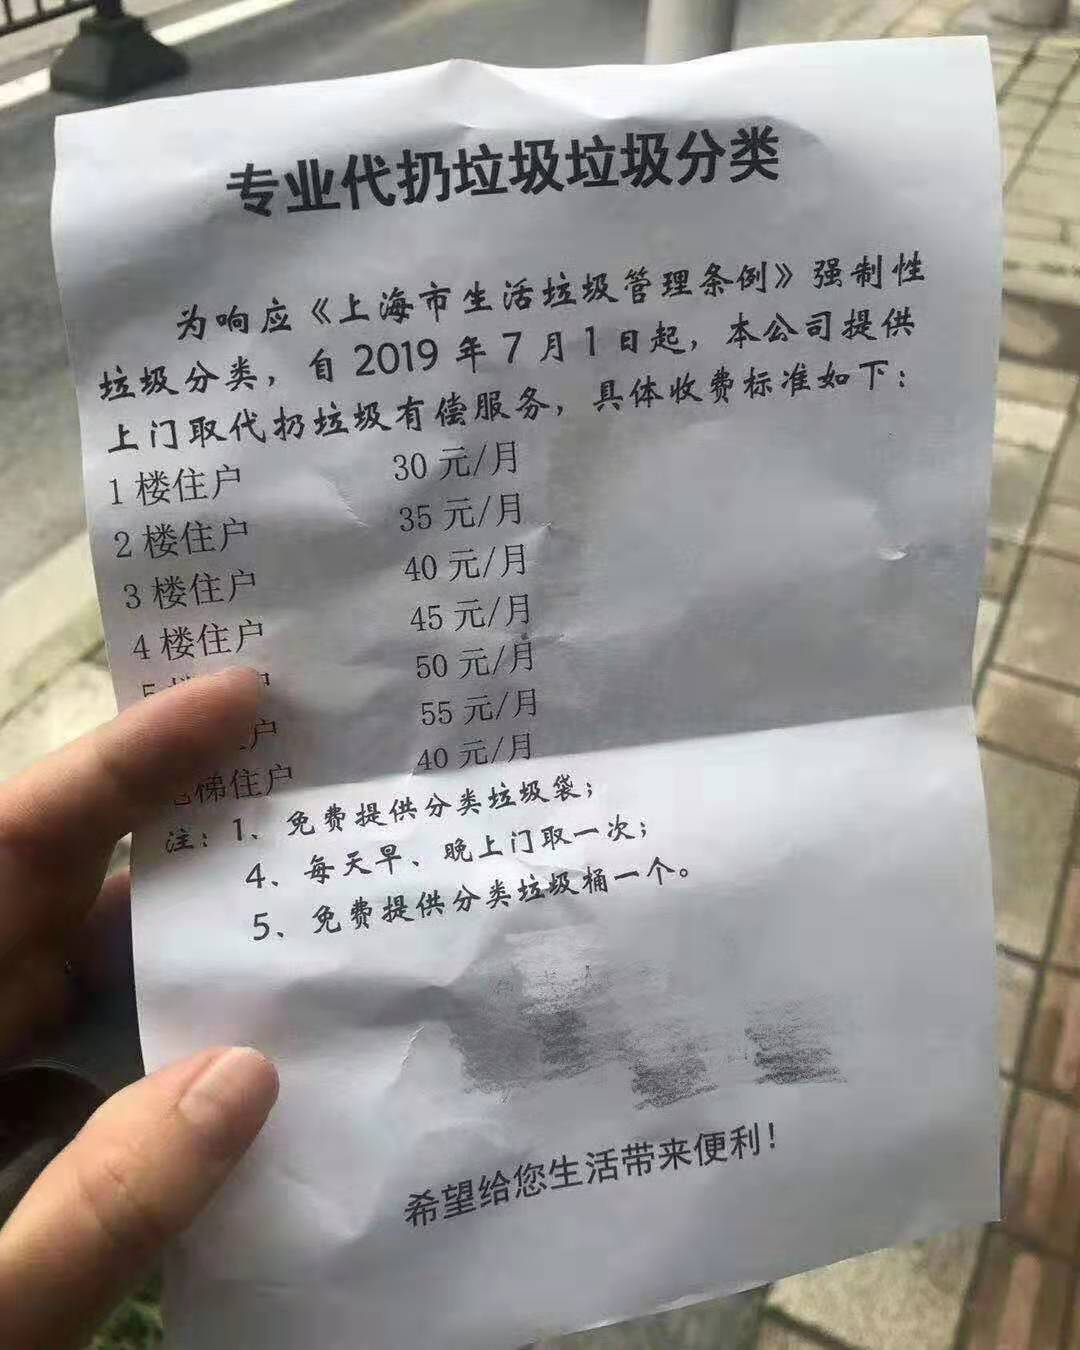 专业代扔垃圾垃圾分类
为响应《上海市生活垃圾管理条例》强制性
垃圾分类，自2019年7月1日起，本公司提供
上门取代扔垃圾有偿服务，具体收费标准如下：
1楼住户 30元/月
2楼住户 35元/月
3楼住户 40元/月
4楼住户 45元/月
5楼 户 50元/月
户 55元/月
梯住户 40元/月
注：1、免费提供分类垃圾袋；
4、每天早、晚上门取一次；
5、免费提供分类垃圾桶一个。
希望给您生活带来便利！